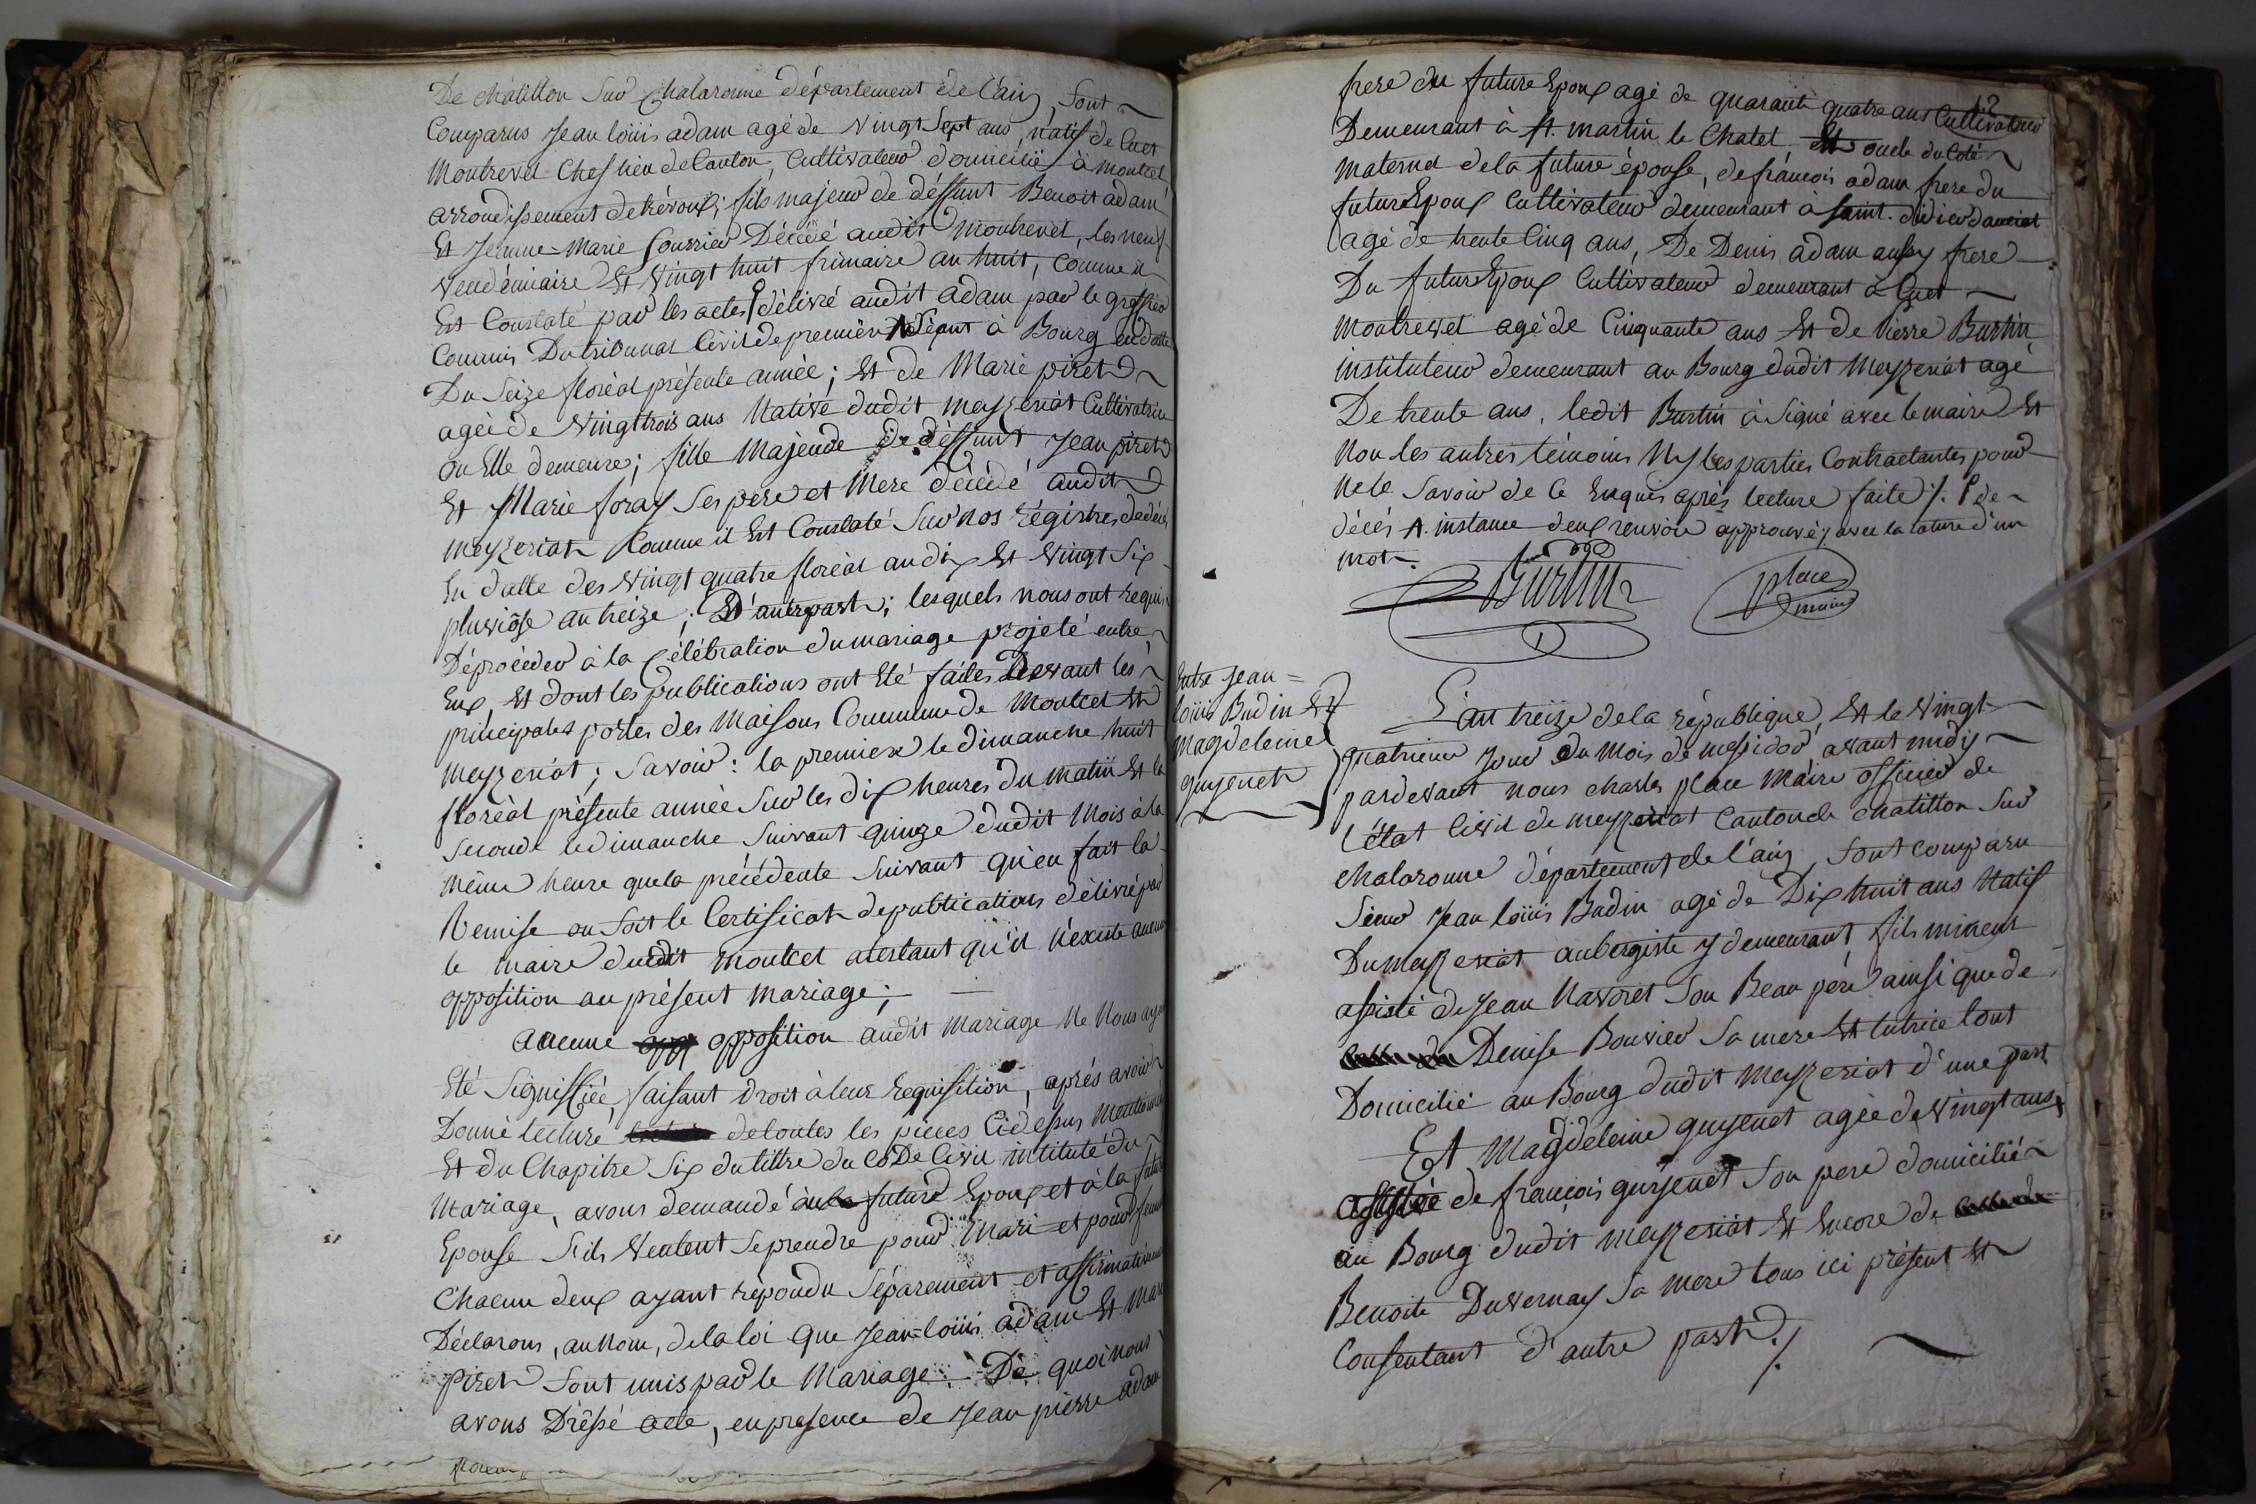 De châtillon sur chalaronne département de l'ain, sont
Comparus Jean loüis adam agé de vingt sept ans, natif de Cuet
Montrevel Chef lieu de Canton, Cultivateur domicilié à moncet
arrondissement de trévoux; fils majeur de déffunt Benoit adam
Et Jeanne-Marie Décédé audit Montrevel, les neuf
vendémiaire Et vingt huit frimaire an huit, comme il
Est Constaté par les actes délivré audit adam par le greffier
Commis Du tribunal Civil de premiere Séant à Bourg en datte
Du Seize floréal présente année; Et de Marie piret
agée de vingt trois ans Native dudit meyzeriat Cultivatrice
ou Elle demeure; fille Majeude De déffunt Jean piret
Et Marie foray Ses pere et Mere décédé audit
meyzeriat Comme il Est Constaté Sur nos régistres de décés
En datte des vingt quatre floréal an dix Et vingt Six
pluviôse an treize; D'autre part; lesquels nous ont requis
De procéder à la Célébration du mariage projeté entre
Eux, Et dont les publications ont Eté faites Devant les
principales portes des Maisons Commune de Montcet Et
meyzeriat; Savoir: la premiere le dimanche huit
floréal présente année Sur les dix heures du matin Et la
Seconde le dimanche Suivant quinze dudit Mois à la
même heure que la précédente Suivant qu'en fait la
Remise ou Soit le Certificat de publications délivré par
le maire dudit montcet atestant qu'il n'existe aucune
opposition au présent mariage;
aucune opposition audit mariage Ne Nous ayant
Eté Signiffiée, faisant droit à leur requisition, aprés avoir
Donné lecture de toutes les pieces Cidessus mentionné
Et du Chapitre Six du tittre du CoDe Civil intitulé du
Mariage, avons demandé au future Epoux et à la future
Epouse S'ils Veulent Se prendre pour Mari et pour femme
Chacun deux ayant répondu Séparement et affirmativement
Déclarons, au Nom, de la loi que Jean-loüis adam Et Marie
piret Sont unis par le Mariage. De quoi nous
avons Dréssé acte, en presence de Jean pierre adam
12
frere du future Epoux agé de quarante quatre ans Cultivateur
Demeurant à St. martin le Chatel oncle du Coté
maternel de la future épouse, de françois adam frere du
future Epoux Cultivateur demeurant à Saint. didier daussiat
agé de trente Cinq ans, De Denis adam aussy frere
Du future Epoux Cultivateur demeurant à Cuet
montrevel agé de Cinquante ans Et de Pierre Burtin
instituteur demeurant au Bourg dudit Meyzeriat agé
De trente ans. ledit Burtin à Signé avec le maire Et
Non les autres témoins Ny les parties Contractantes pour
Ne le Savoir de Ce Enquis aprés lecture faite ./. de
décés. instance deux renvoie approuvé, avec la rature d'un
mot.
Burtin
place
maire
Entre Jean =
loüis Budin Et
Magdeleine
guyenet
L'an treize de la république, Et le vingt
quatrieme Jour du Mois de messidor avant midy
pardevant nous charles place Maire officier de
l'état Civil de meyzeriat Canton de chatillon Sur
chalaronne département de l'ain, Sont comparu
Sieur Jean loüis Budin agé de Dix huit ans Natif
Du meyzeriat aubergiste y demeurant fils mineur
assisté de Jean Navoret Son Beau pere ainsi que de
Denise Bouvier Sa mere Et tutrice tout
Domicilié au Bourg dudit meyzeriat d'une part
Et Magdeleine guyenet agée de vingt ans,
assistée de françois guyenet Son pere domicilié
au Bourg dudit meyzeriat Et Encore de
Benoite Duvernay Sa mere tous ici présent Et
Consentant d'autre part ./.